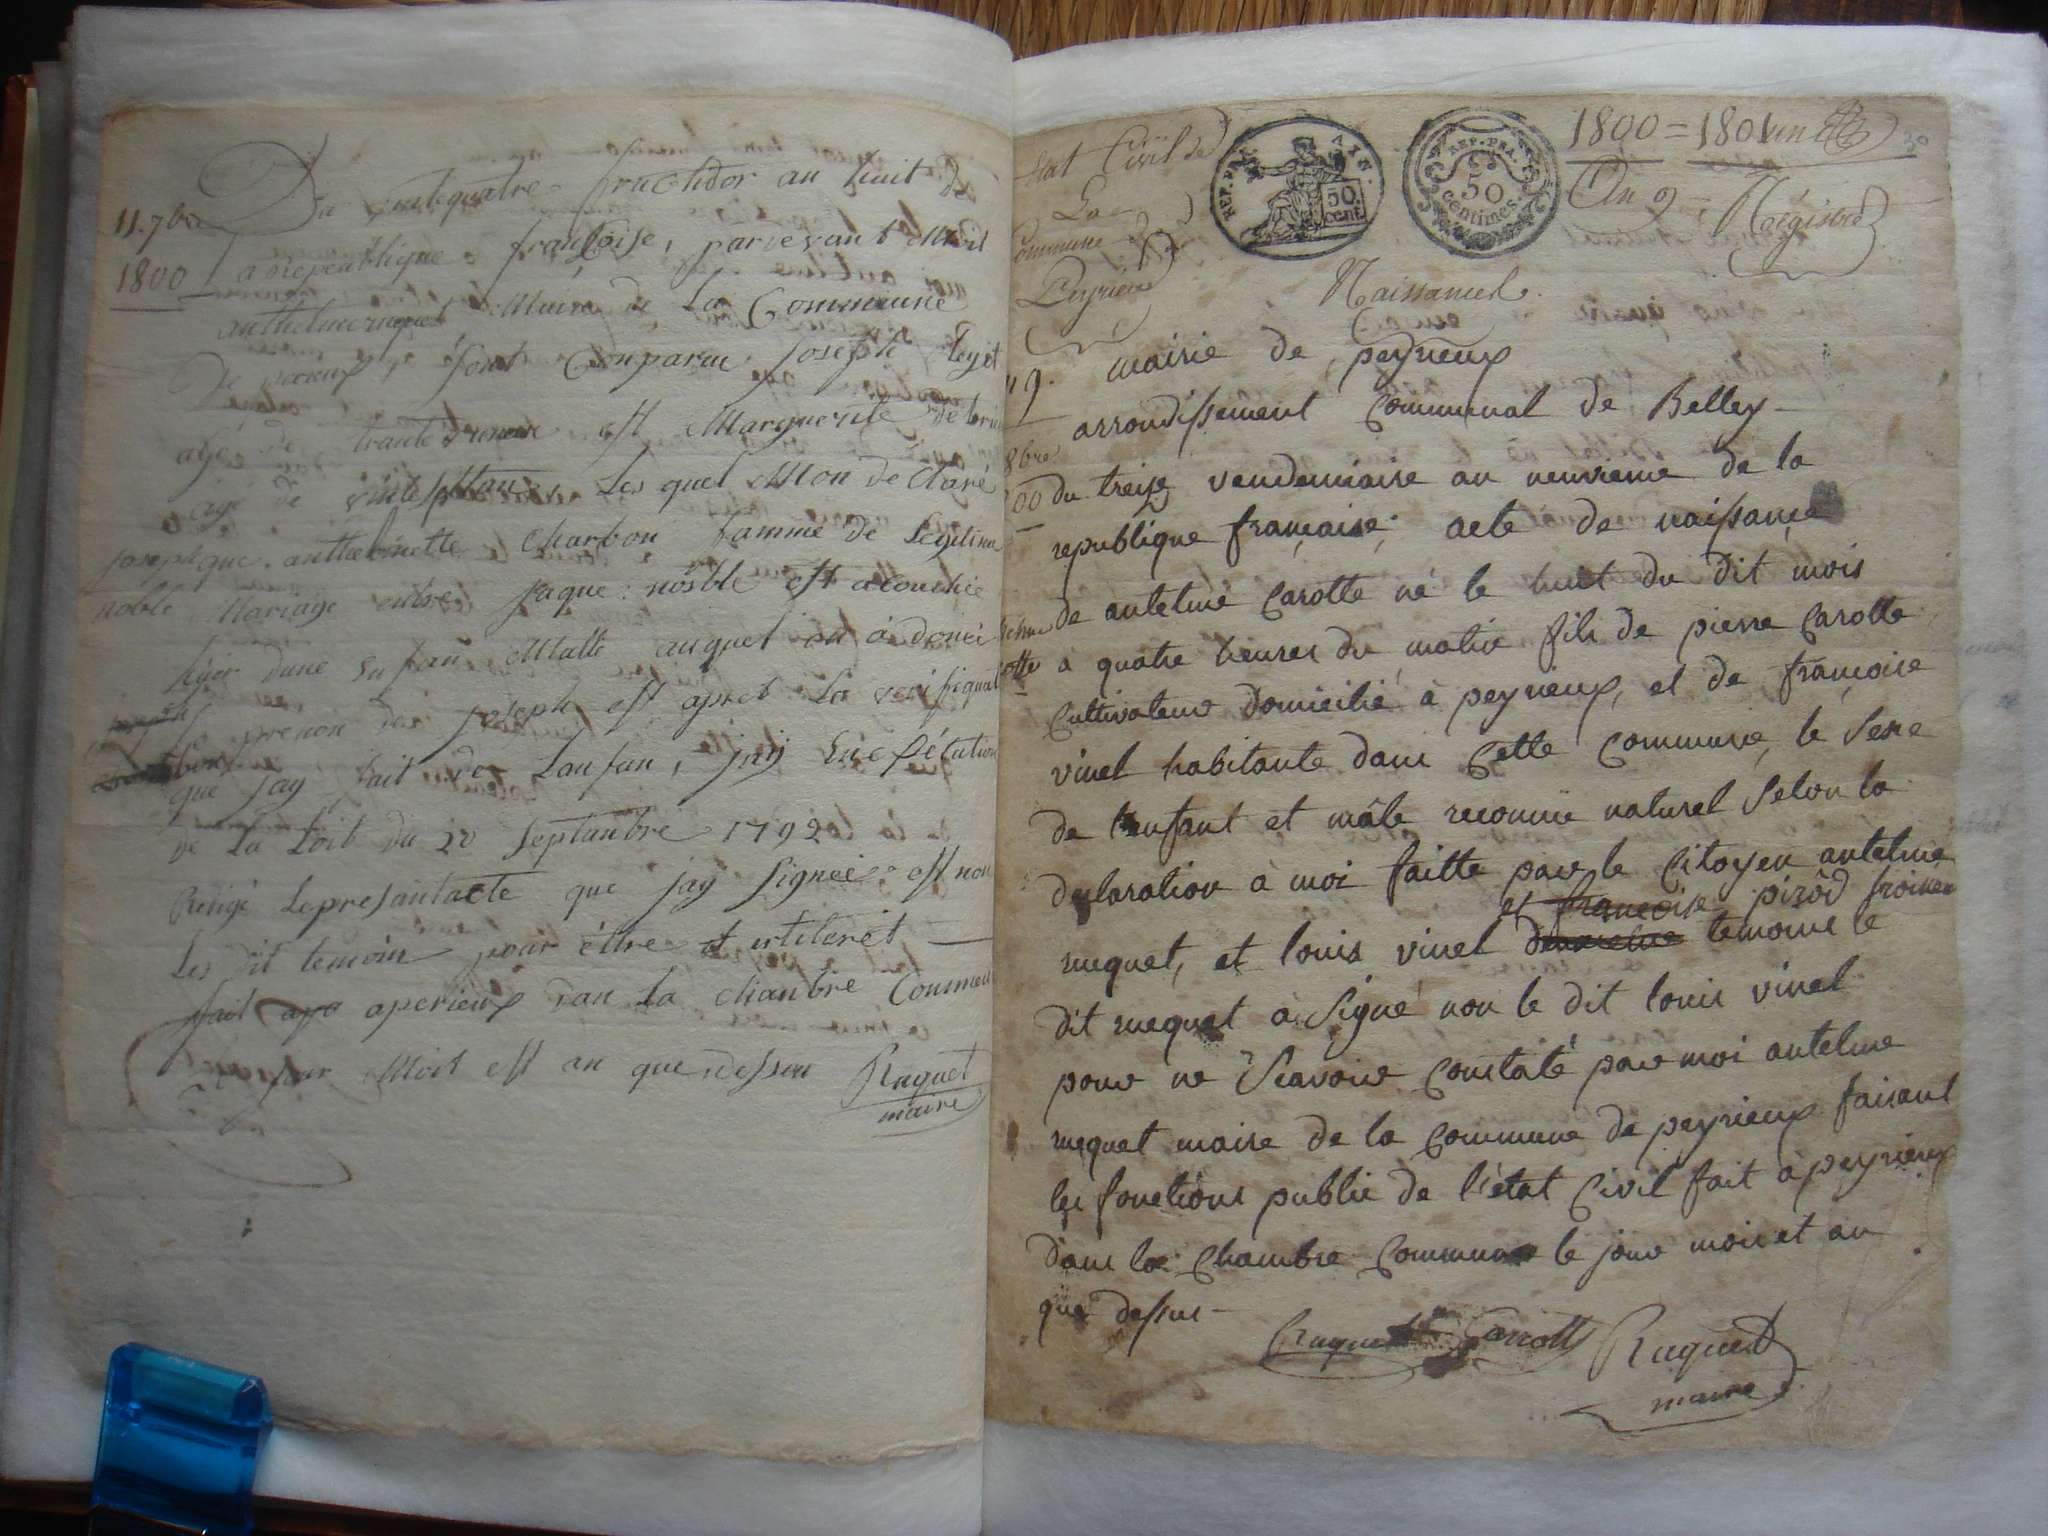 11. 7bre
1800
Du vintequatre fructidor an huit de
La republique françoise, parvevant Moit
anthelme ruquet Maire de La Commune
De perieux sont Conparue joseph
age de trante est Marguerite
age de vintesept ans, Les quel Mon de Claré
josephque. anthelmette Charbon famme de Legitime
noble Mariage entre jaque: noble est acouchée
hyer dune enfan Malle auquel on à donné
Le prenon de joseph est apret La verifiquat
que jay fait de Lanfan, jay
de La Loit du 20 Septanbre 1792
Redigé Lepresantacte que jay Signié est non
Les dit temoin pour éttre
fait aperieux dan La chanbre Commeu
jour Moit est an que Desseu
Ruquet
maire
Etat Civil de
La
Commune de
Peyrieux
REP. FRA.
50
cent.
REP. FRA.
50
centimes.
1800 = 1801
An 9 = Registre
Naissances.
mairie de peyrieux
arrondissement Communal de Belley
8bre
du treize vendemiaire an neuvieme de la
republique française; acte de naissance
de antelme Carotte né le huit du dit mois
à quatre heures du matin fils de pierre Carotte
Cultivateur domicilié à peyrieux, et de françoise
vinel habitante dans Cette Commune, le Sexe
de l'enfant et mâle reconnu naturel Selon la
declaration à moi faitte par le Citoyen antelme
et françoise pizôd
ruquet, et louis vinel temoins le
dit ruquet a Signé non le dit louis vinel
pour ne Scavoir Constaté par moi antelme
ruquet maire de la Commune de peyrieux faisant
les fonctions public de l'état Civil fait à peyrieux
dans la Chambre Commune le jour mois et an
que dessus
Ruquet Carrotte Ruquet
maire